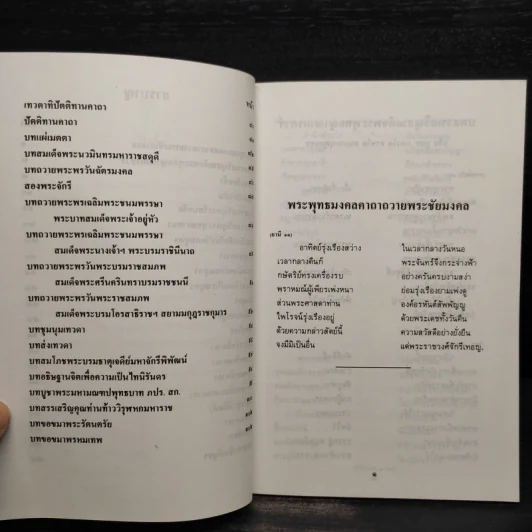 เทวตาทิปัตติทานคาถา
ปัตติทานคาถา
บทแผ่เมตตา
บทสมเด็จพระนวมินทรมหาราชสดุดี
บทถวายพระพรวันฉัตรมงคล
สองพระจักรี
บทถวายพระพรเฉลิมพระชนมพรรษา
พระบาทสมเด็จพระเจ้าอยู่หัว
บทถวายพระพรเฉลิมพระชนมพรรษา
สมเด็จพระนางเจ้าฯ พระบรมราชินีนาถ
บทถวายพระพรวันพระบรมราชสมภพ
สมเด็จพระศรีนครินทราบรมราชชนนี
บทถวายพระพรวันพระราชสมภพ
สมเด็จพระบรมโอรสาธิราชฯ สยามมกุฎราชกุมาร
บทชุมนุมเทวดา
บทส่งเทวดา
บทสมโภชพระบรมธาตุเจดีย์มหาจักรีพิพัฒน์
บทอธิษฐานจิตเพื่อความเป็นไทนิรันดร
บทบูชาพระมหามณฑปพุทธบาท ภปร. สก.
บทสรรเสริญคุณท่านท้าววิรุฬหกมหาราช
บทขอขมาพระรัตนตรัย
บทขอขมาพรหมเทพ
พระพุทธมงคลคาถาถวายพระชัยมงคล
(ยานี ๑๑)
อาทิตย์รุ่งเรืองสว่าง ในเวลากลางวันหนอ
เวลากลางคืนก็ พระจันทร์จึงกระจ่างฟ้า
กษัตริย์ทรงเครื่องรบ อย่างครันครบงามสง่า
พราหมณ์ผู้เพียรเพ่งหนา ย่อมรุ่งเรืองยามเพ่งดู
ส่วนพระศาสดาท่าน องค์อรหันต์สัพพัญญู
ไพโรจน์รุ่งเรืองอยู่ ด้วยพระเดชทั้งวันคืน
ด้วยความกล่าวสัตย์นี้ ความสวัสดีอย่างยั่งยืน
จงมีมิเป็นอื่น แด่พระราชวงศ์จักรีเทอญ.